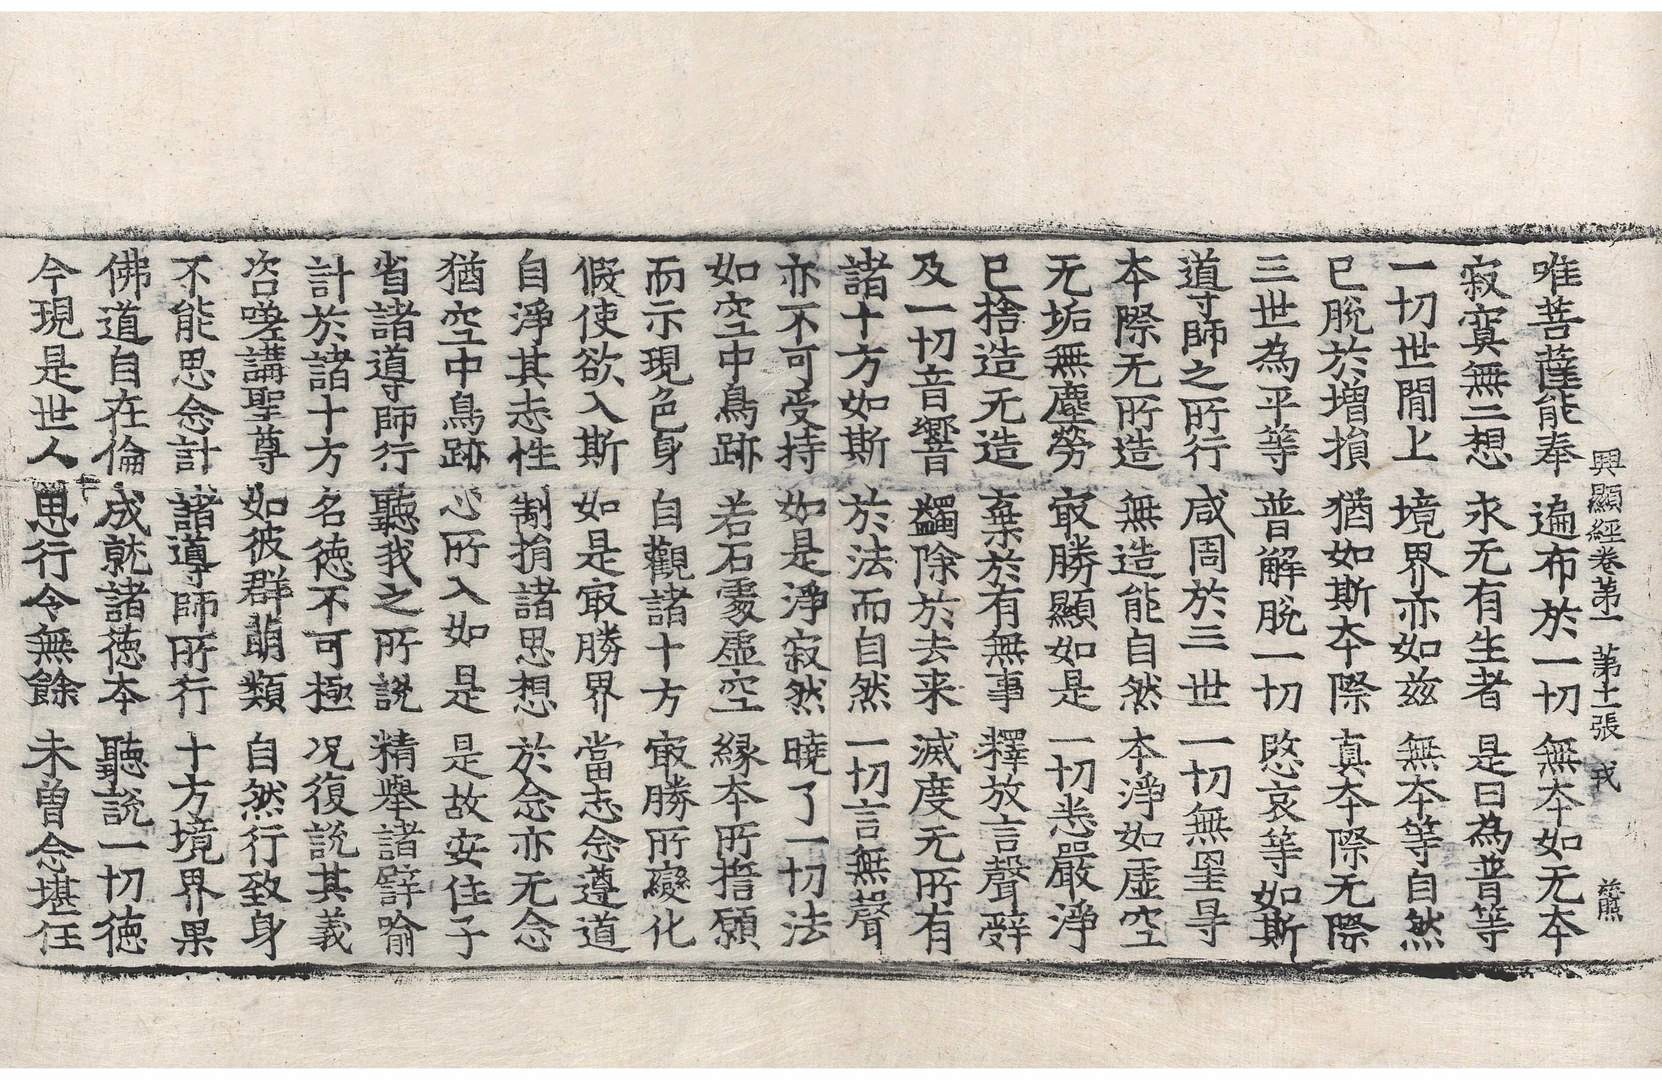 興顯經卷苐一　苐十二張　戎
唯菩薩能奉　遍布於一切　無夲如无夲
寂寞無二想　永无有生者　是曰為普等
一切世閒上　境界亦如茲　無夲等自然
已脫於增損　猶如斯夲際　真夲際无際
三世為平等　普解脫一切　愍哀等如斯
導師之所行　咸周於三世　一切無罣㝵
夲際无所造　無造能自然　夲淨如虛空
无垢無塵勞　冣勝顯如是　一切悉嚴淨
已捨造无造　棄於有無事　釋放言聲辝
及一切音響　蠲除於去来　滅度无所有
諸十方如斯　於法而自然　一切言無聲
亦不可受持　如是淨寂然　曉了一切法
如空中鳥跡　若石霓虛空　縁夲所擔願
而示現色身　自觀諸十方　冣勝所變化
假使欲入斯　如是冣勝界　當志念遵道
自淨其志性　制捐諸思想　於念亦无念
猶空中鳥跡　心所入如是　是故安住子
省諸導師行　聽我之所說　精舉諸譬喻
計於諸十方　名德不可極　况復說其義
咨嗟講聖尊　如彼群萌類　自然行致身
不能思念計　諸導師所行　十方境界果
佛道自在倫　成就諸德夲　聽說一切德
今現是世人　思行令無餘　未曽念堪任